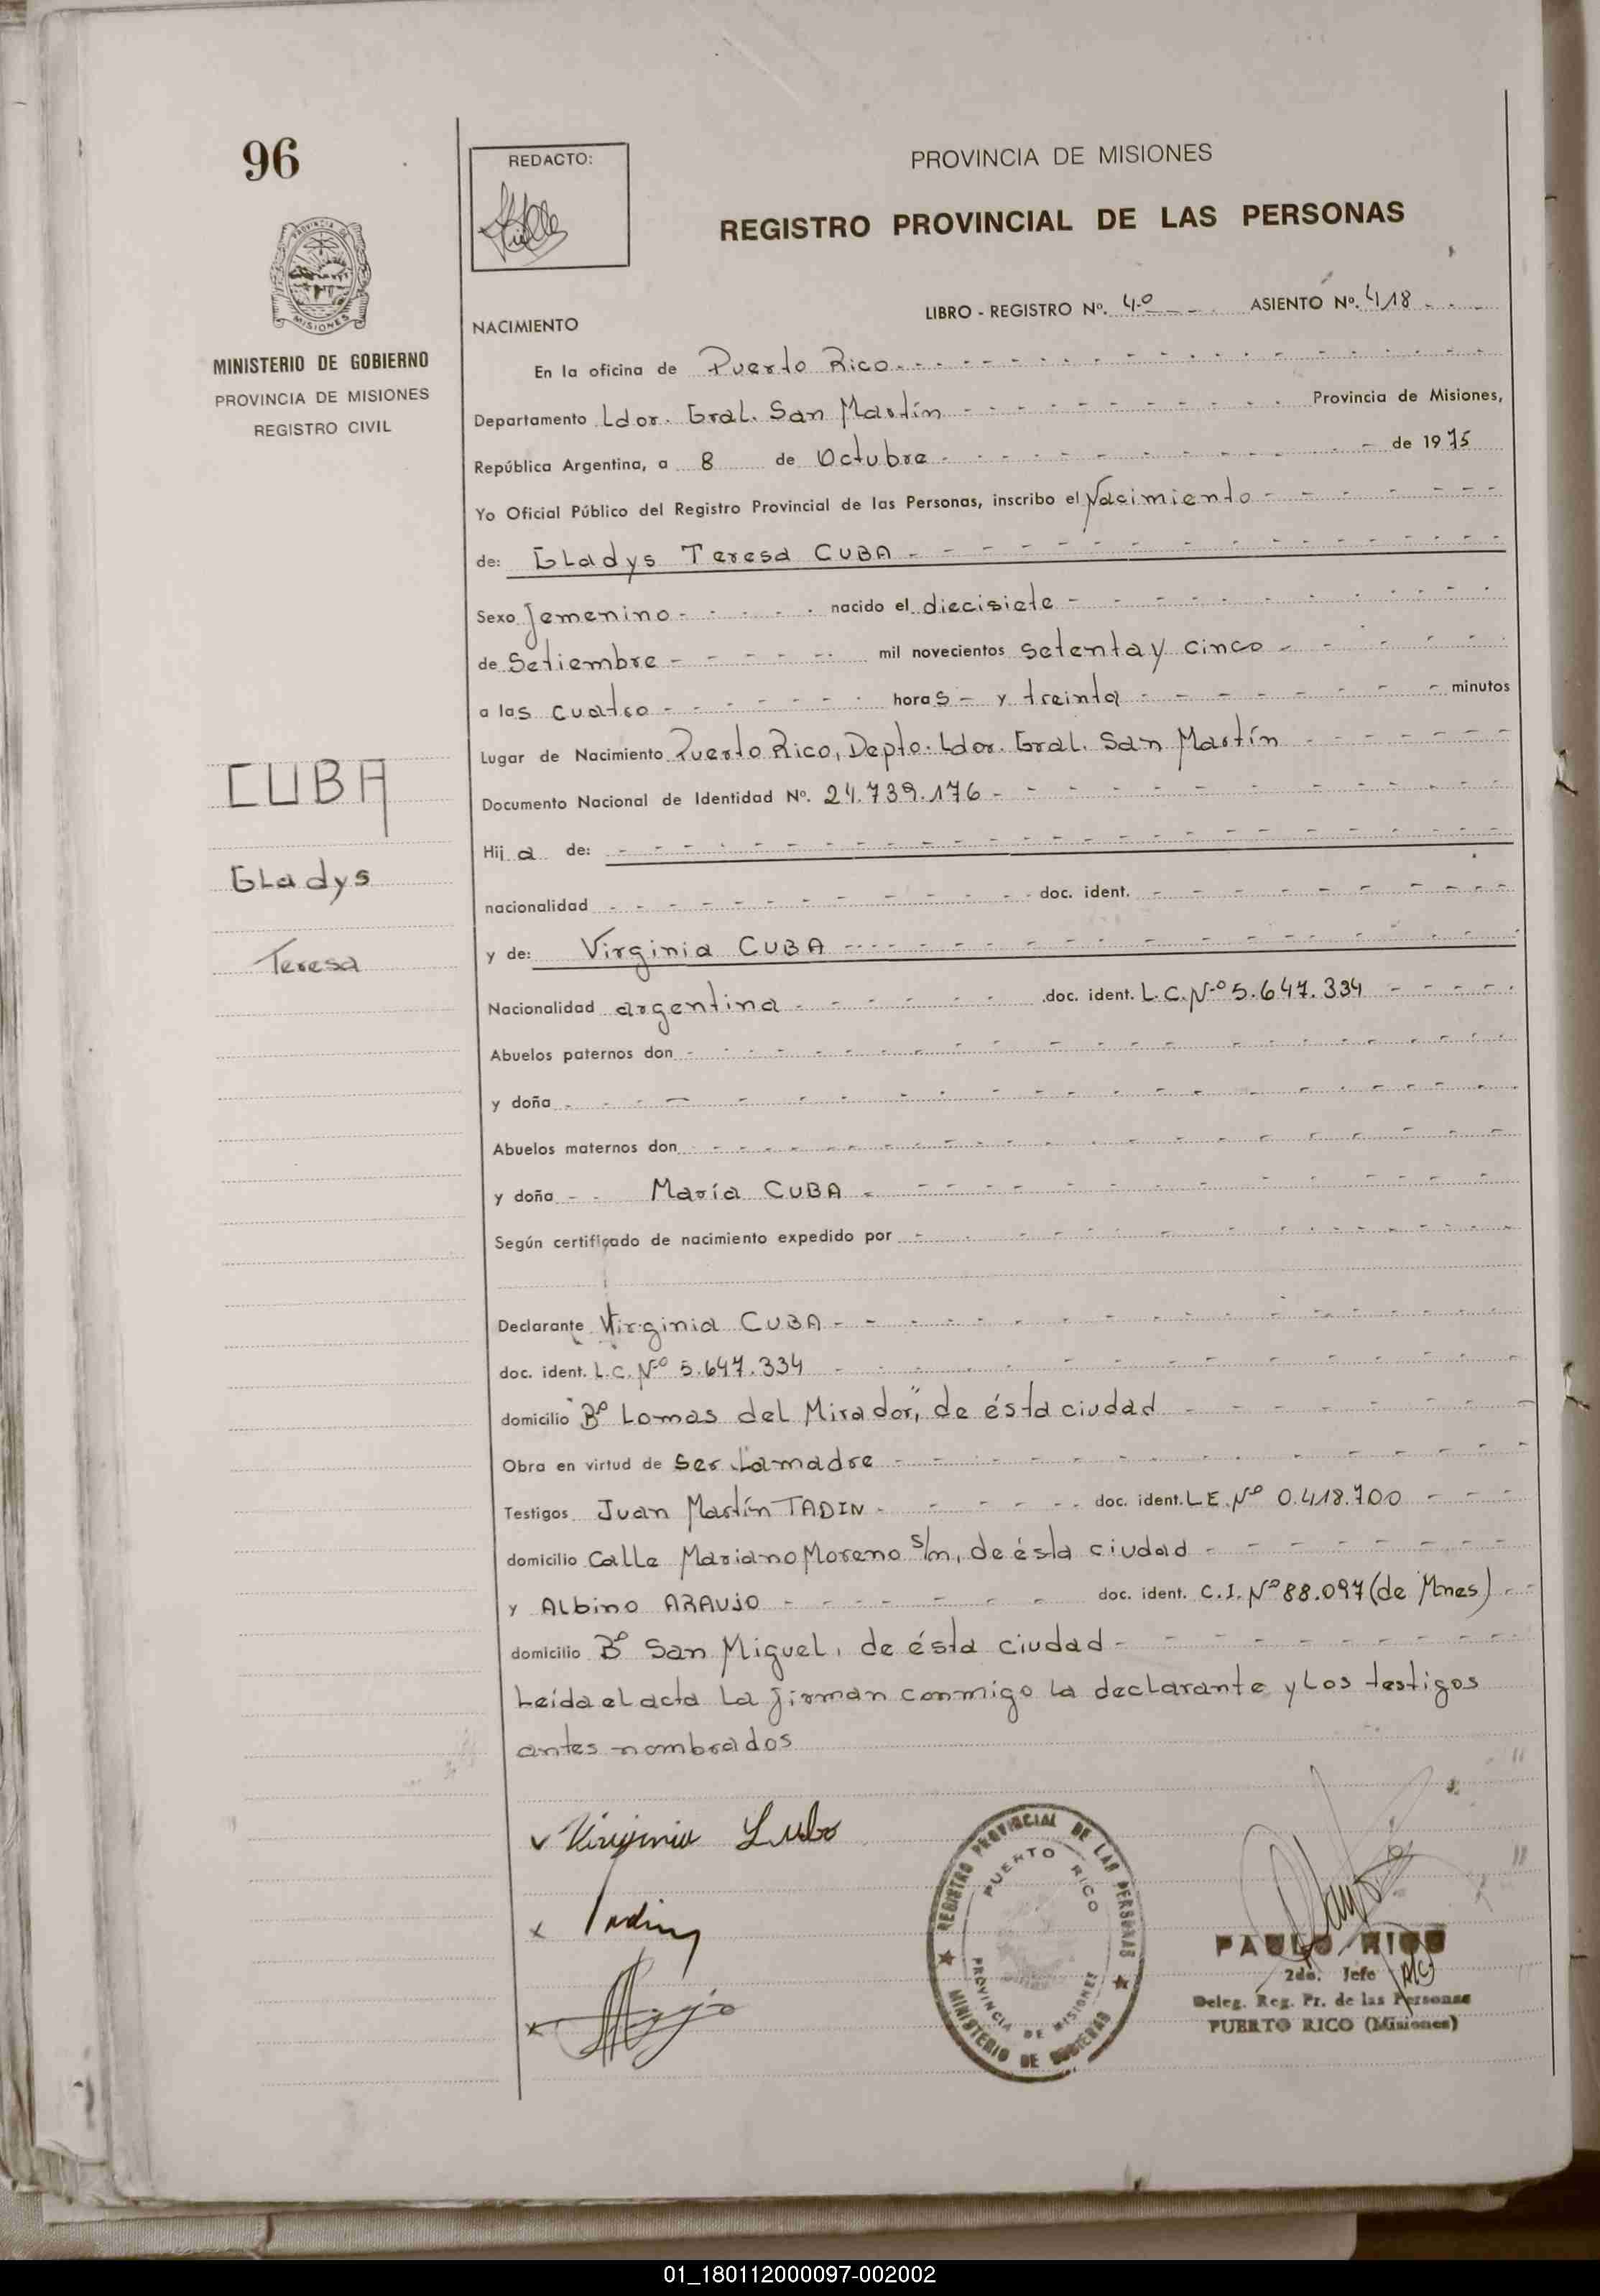 96
PROVINCIA DE MISIONES
MINISTERIO DE GOBIERNO
PROVINCIA DE MISIONES
REGISTRO CIVIL
CUBA
Gladys
Teresa
REDACTO:
PROVINCIA DE MISIONES
REGISTRO PROVINCIAL DE LAS PERSONAS
LIBRO - REGISTRO Nº. 40 ASIENTO Nº. 418
NACIMIENTO
En la oficina de Puerto Rico
Departamento Ldor. Gral. San Martín Provincia de Misiones,
República Argentina, a 8 de Octubre de 1975
Yo Oficial Público del Registro Provincial de las Personas, inscribo el Nacimiento
de: Gladys Teresa CUBA
Sexo femenino nacido el diecisiete
de Setiembre mil novecientos setenta y cinco
a las cuatro horas y treinta minutos
Lugar de Nacimiento Puerto Rico, Depto. Ldor. Gral. San Martín
Documento Nacional de Identidad Nº. 24.739.176
Hija de:
nacionalidad doc. ident.
y de: Virginia CUBA
Nacionalidad argentina doc. ident. L.C. Nº 5.647.334
Abuelos paternos don
y doña
Abuelos maternos don
y doña María CUBA
Según certificado de nacimiento expedido por
Declarante Virginia CUBA
doc. ident. L.C. Nº 5.647.334
domicilio "Bº Lomas del Mirador", de ésta ciudad
Obra en virtud de ser la madre
Testigos Juan Martín TADIN doc. ident. L.E. Nº 0.418.700
domicilio calle Mariano Moreno s/n, de ésta ciudad
y Albino ARAUJO doc. ident. C.I. Nº 88.097 (de Mnes)
domicilio Bº San Miguel, de ésta ciudad
Leída el acta la firman conmigo la declarante y los testigos
antes nombrados
Virginia Cuba
Tadin
REGISTRO PROVINCIAL DE LAS PERSONAS
PUERTO RICO
PROVINCIA DE MISIONES
MINISTERIO DE GOBIERNO
PAULO RIOS
2do. Jefe
Deleg. Reg. Pr. de las Personas
PUERTO RICO (Misiones)
01_180112000097-002002